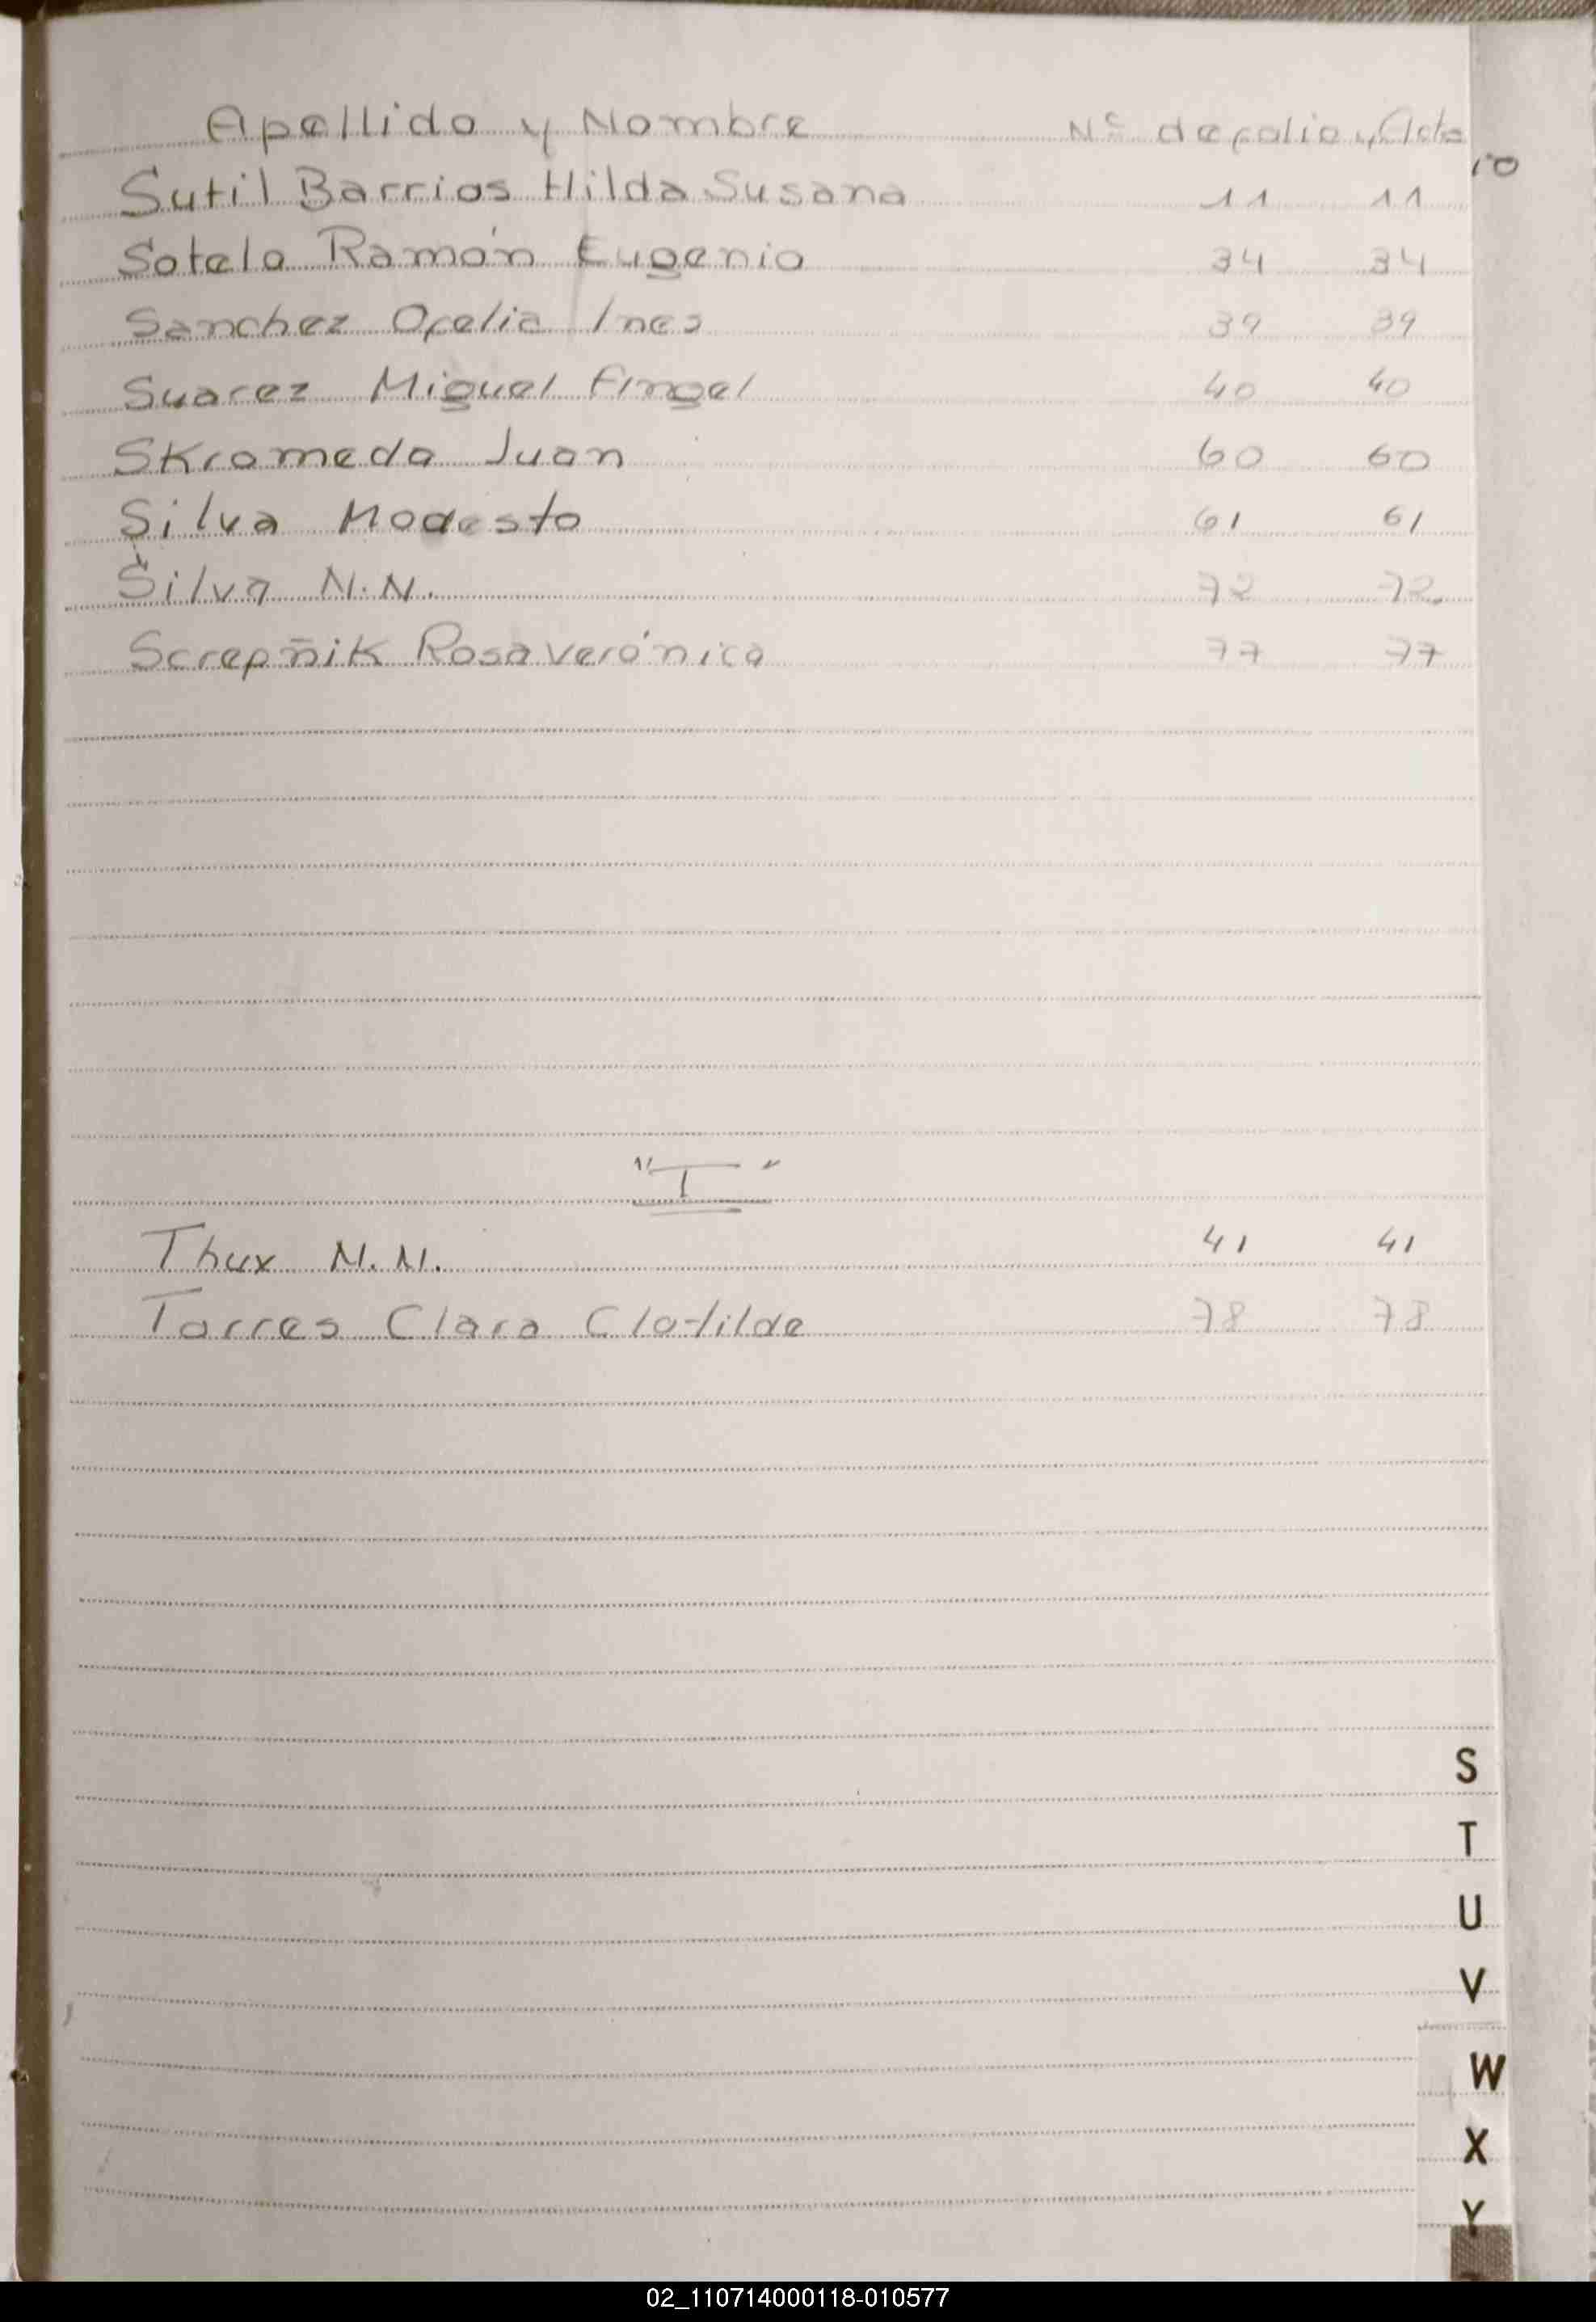 Apellido y Nombre Nº de folio y Acta
Sutil Barrios Hilda Susana 11 11
Sotelo Ramón Eugenio 34 34
Sanchez Ofelia Ines 39 39
Suarez Miguel Angel 40 40
Skromeda Juan 60 60
Silva Modesto 61 61
Silva N.N. 72 72
Screpñik Rosa Verónica 77 77
"T"
Thux N.N. 41 41
Torres Clara Clotilde 78 78
S
T
U
V
W
X
Y
02_110714000118-010577